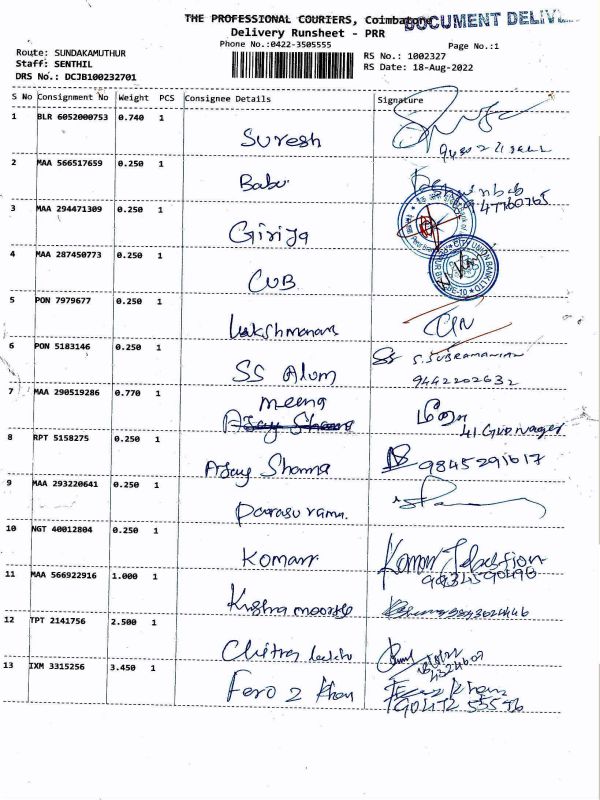 THE PROFESSIONAL COURIERS, Coimbatore
DOCUMENT DELIV
Delivery Runsheet - PRR
Phone No.:0422-3505555
Page No.:1
Route: SUNDAKAMUTHUR
RS No.: 1002327
Staff: SENTHIL
RS Date: 18-Aug-2022
DRS No.: DCJB100232701
S No Consignment No Weight PCS Consignee Details Signature
1 BLR 6052000753 0.740 1 Suresh
2 MAA 566517659 0.250 1 Babu
3 MAA 294471309 0.250 1 Girija
4 MAA 287450773 0.250 1 CUB
CITY UNION BANK LTD
5 PON 7979677 0.250 1 Lakshmanan
6 PON 5183146 0.250 1 SS Alum S. SUBRAMANIAN
9442202632
7 MAA 290519286 0.770 1 meena மீனா
Ajay Sharma 41. Guru nager
8 RPT 5158275 0.250 1 Ajay Sharma 9845291617
9 MAA 293220641 0.250 1 Parasurama.
10 NGT 40012804 0.250 1 Komarr
11 MAA 566922916 1.000 1 Krishna moorthy
12 TPT 2141756 2.500 1 Chitra
13 IXM 3315256 3.450 1 Feroz Khan